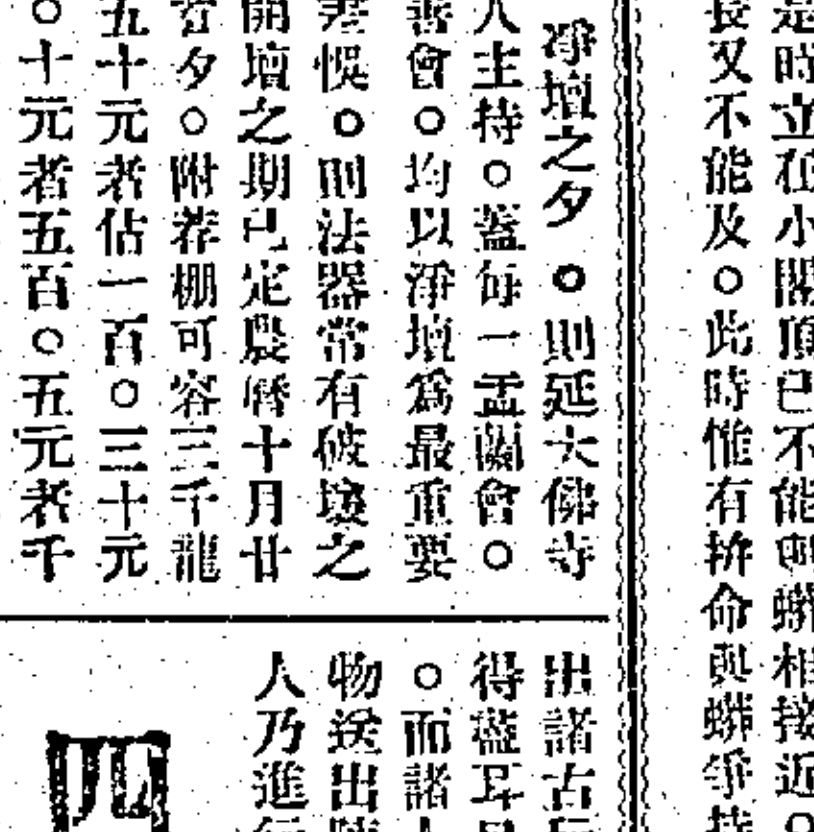 是時立在小閣頂已不能與蟒相接近○
長又不能及○此時惟有拚命與蟒爭持
淨壇之夕○則延大佛寺
人主持○蓋每一盂蘭會○
善會○均以淨壇為最重要
差悞○則法器常有破壞之
開壇之期已定農曆十月廿
宵夕○附荐棚可容三千龍
五十元者佔一百○三十元
○十元者五百○五元者千
出諸古
得盡耳
○而諸
物送出
人乃進行
四